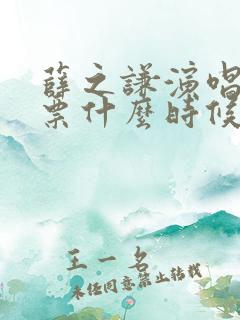 薛之謙演唱
票什麼時候
王一名
未经同意禁止转载